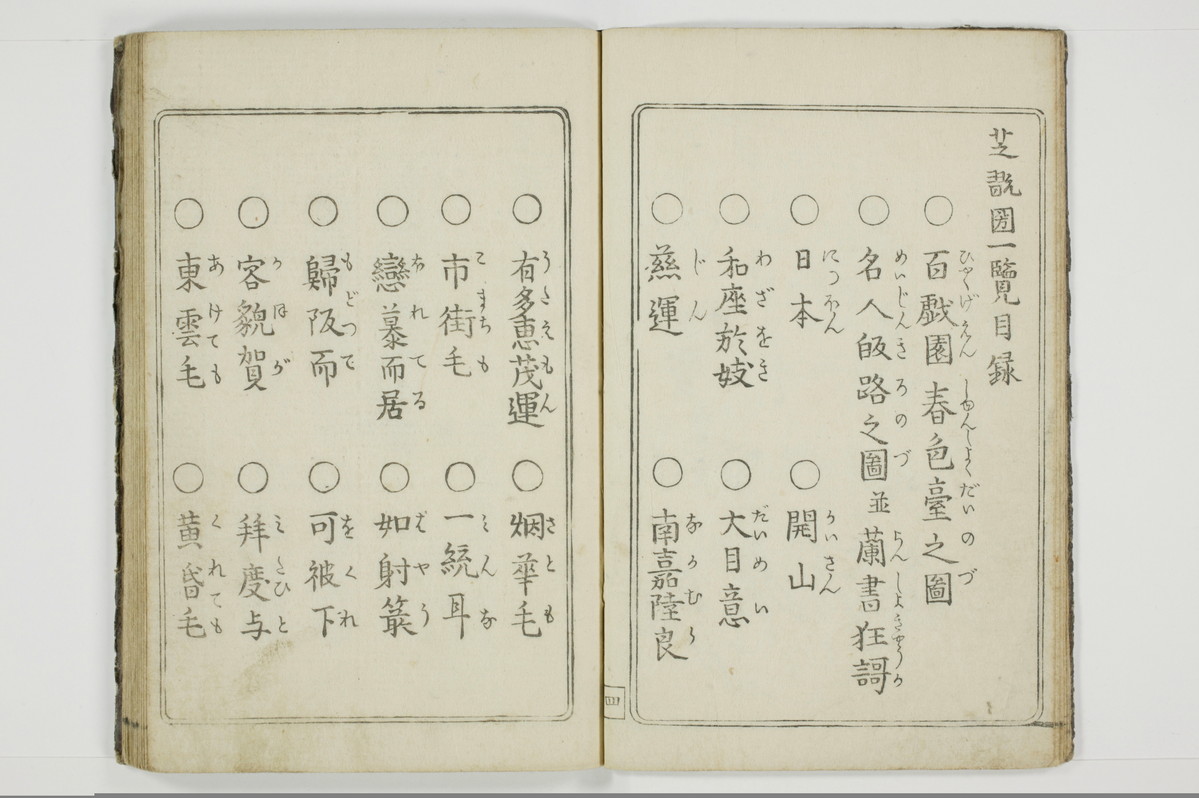 芝翫圀一覽目録
ひやくげゑん しゆんしよくだいのづ
○百戯園春色臺之圖
めいじんきろのづ らんしよきやうか
○名人皈路之圖並蘭書狂謌
につほん かいさん
○日本 ○開山
わざをき だいめい
○和座於妓 ○大目意
じん なかむら
○慈運 ○南嘉陸良
四
うたゑもん さとも
○有多恵茂運 ○烟華毛
こまちも みんな
○市街毛 ○一統耳
ほれてる
○戀慕而居 ○如射簇
もどつて をくれ
○歸阪而 ○可被下
かほが みたひと
○容貌賀 ○拜度与
あけても くれても
○東雲毛 ○黄昏毛